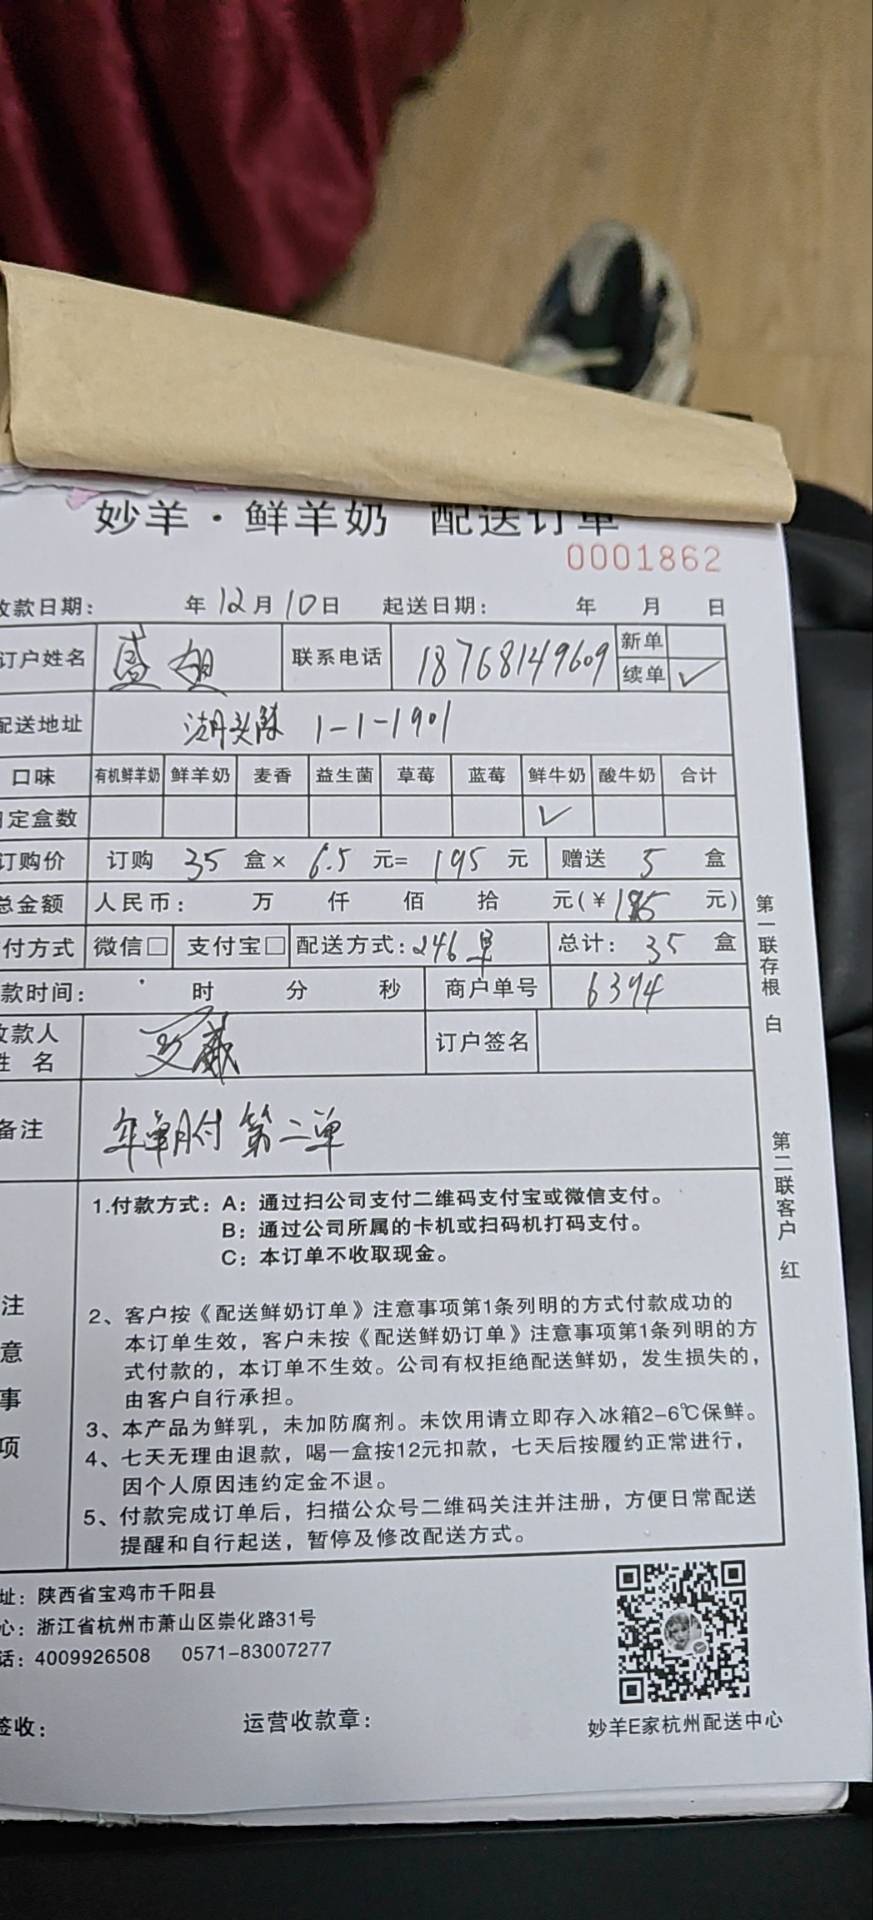 妙羊·鲜羊奶 配送订单
0001862
收款日期： 年12月10日 起送日期： 年 月 日
订户姓名 盛姐 联系电话 18768149609 新单
续单 ✓
配送地址 湖头陈 1-1-1901
口味 有机鲜羊奶 鲜羊奶 麦香 益生菌 草莓 蓝莓 鲜牛奶 酸牛奶 合计
定盒数 ✓
订购价 订购 35 盒× 6.5 元= 195 元 赠送 5 盒
总金额 人民币： 万 仟 佰 拾 元(￥195 元)
付方式 微信□ 支付宝□ 配送方式：246单 总计： 35 盒
款时间： 时 分 秒 商户单号 6394
收款人
姓 名 订户签名
备注 年单月付 第二单
1.付款方式：A：通过扫公司支付二维码支付宝或微信支付。
B：通过公司所属的卡机或扫码机打码支付。
C：本订单不收取现金。
注意事项
2、客户按《配送鲜奶订单》注意事项第1条列明的方式付款成功的
本订单生效，客户未按《配送鲜奶订单》注意事项第1条列明的方
式付款的，本订单不生效。公司有权拒绝配送鲜奶，发生损失的，
由客户自行承担。
3、本产品为鲜乳，未加防腐剂。未饮用请立即存入冰箱2-6℃保鲜。
4、七天无理由退款，喝一盒按12元扣款，七天后按履约正常进行，
因个人原因违约定金不退。
5、付款完成订单后，扫描公众号二维码关注并注册，方便日常配送
提醒和自行起送，暂停及修改配送方式。
第一联存根 白
第二联客户 红
址：陕西省宝鸡市千阳县
心：浙江省杭州市萧山区崇化路31号
话：4009926508 0571-83007277
签收： 运营收款章：
妙羊E家杭州配送中心